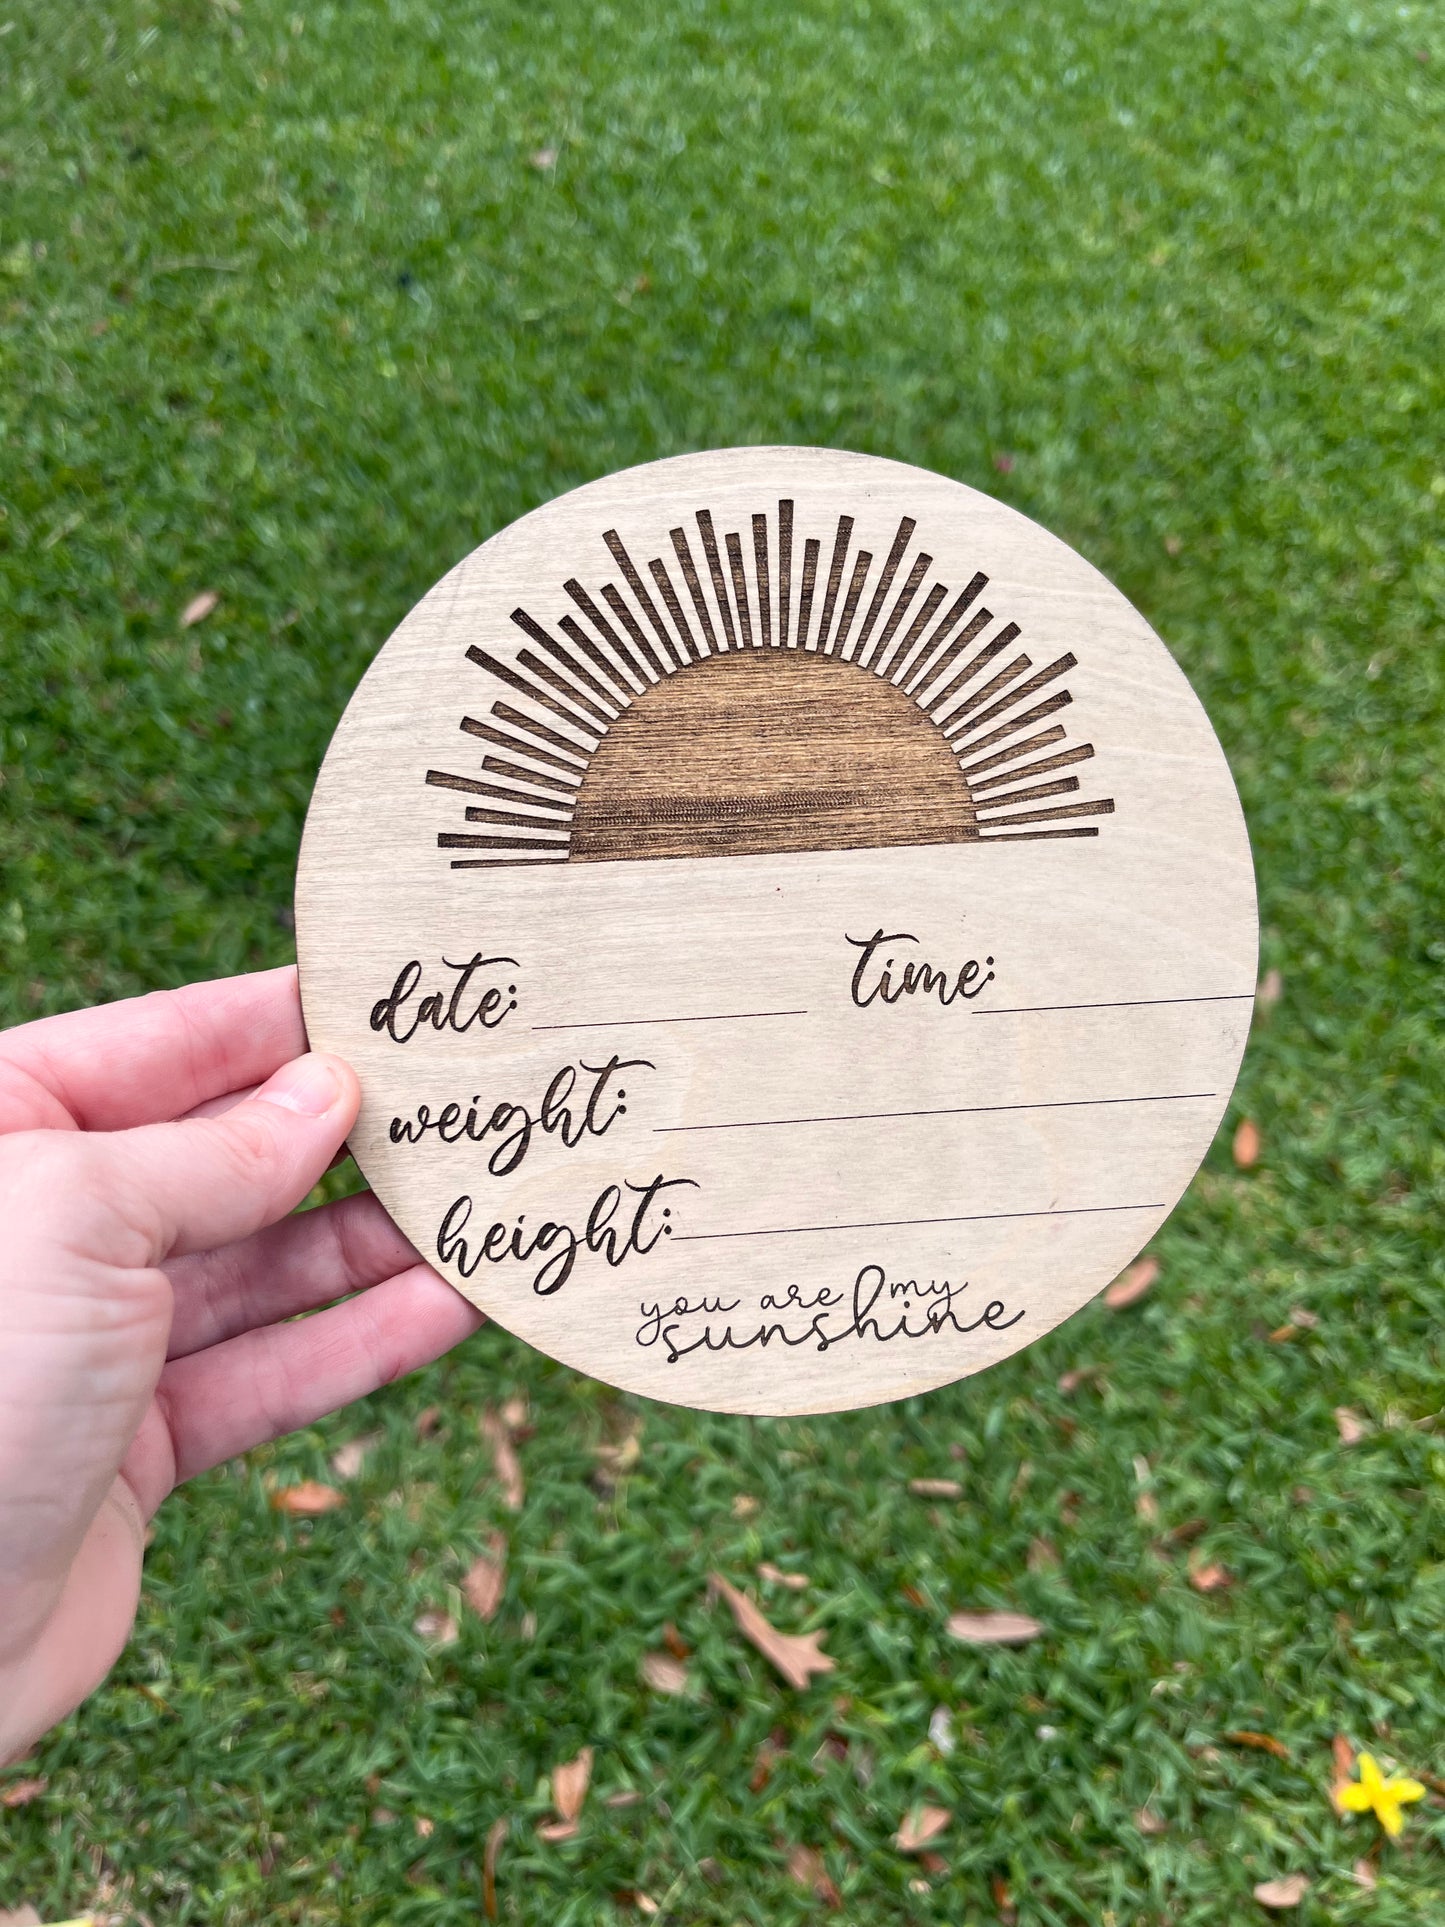 date: time:
weight:
height:
you are my
sunshine